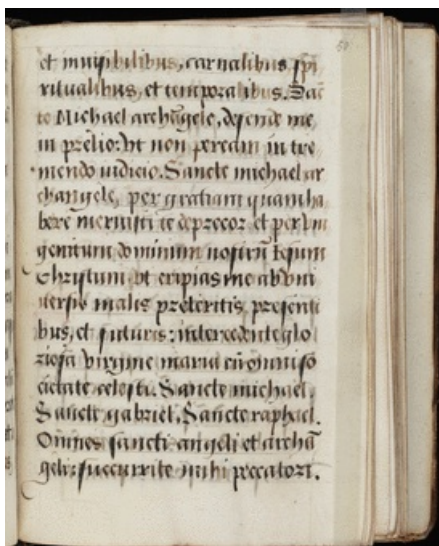 et inuisibilibus, carnalibus spi
ritualibus, et temporalibus. Sac
te Michael archāgele, defende me
in prelio: vt non peream in tre
mendo iudicio. Sancte michael ar
changele, per gratiam quam ha
bere meruisti te deprecor et per vni
genitum dominum nostrū Iesum
Christum. vt eripias me ab vni
uersis malis preteritis, presenti
bus, et futuris: intercedente glo
riosa virgine maria cū omni so
cietate celesti. Sancte michael.
Sancte gabriel. Sancte raphael.
Omnes sancti angeli et archā
geli: succurrite mihi peccatori.